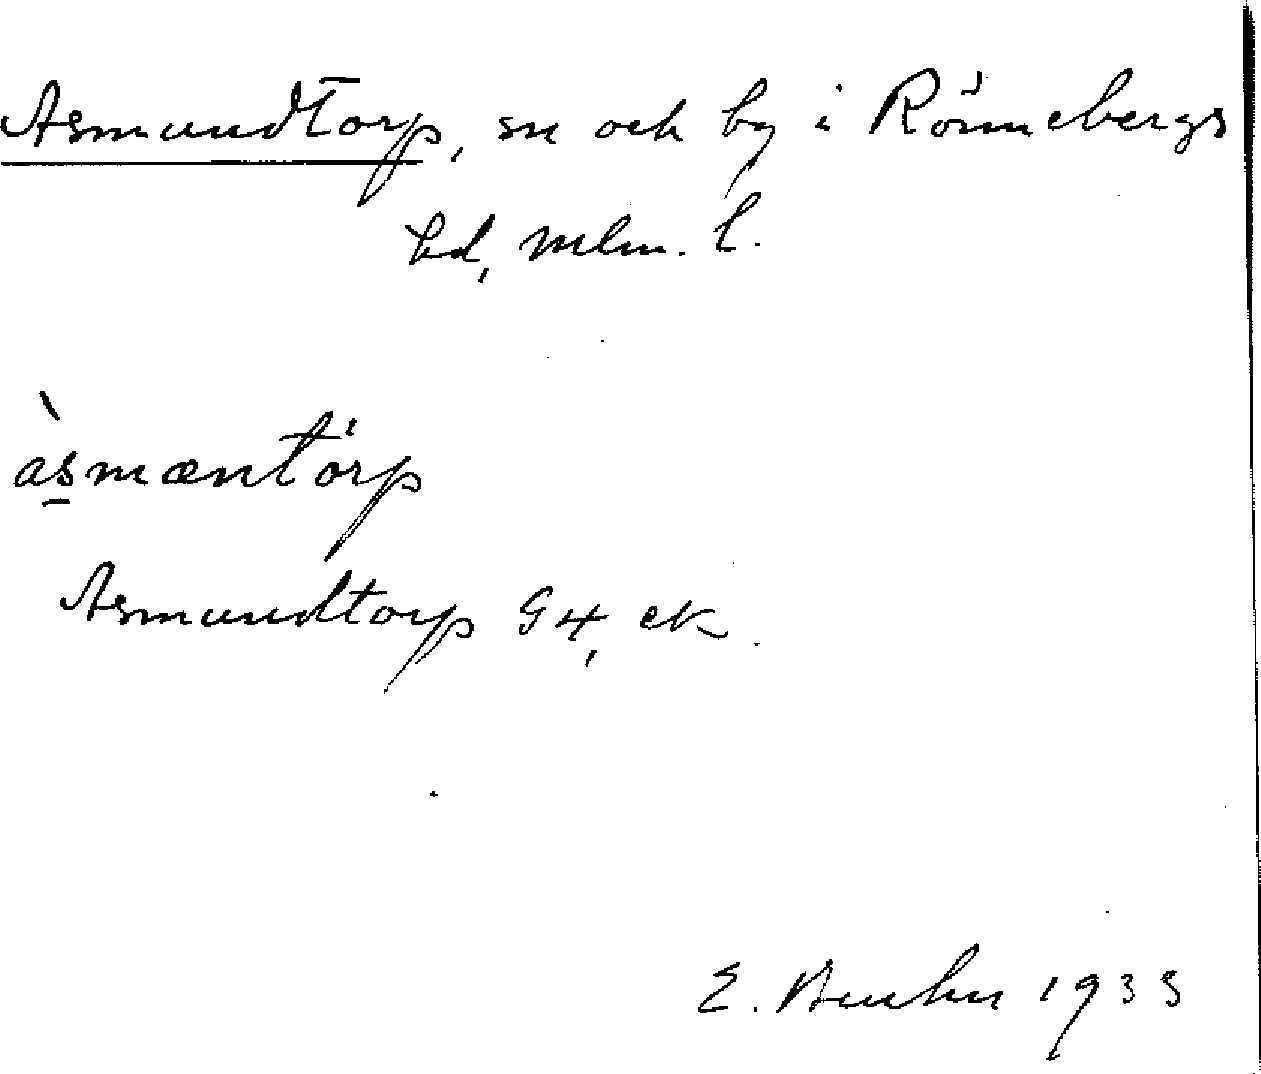 Asmundtorp, sn och by i Rönnebergs
hd, Mlm. l.
àsmæntórp
Asmundtorp G4, ek.
E. 1933